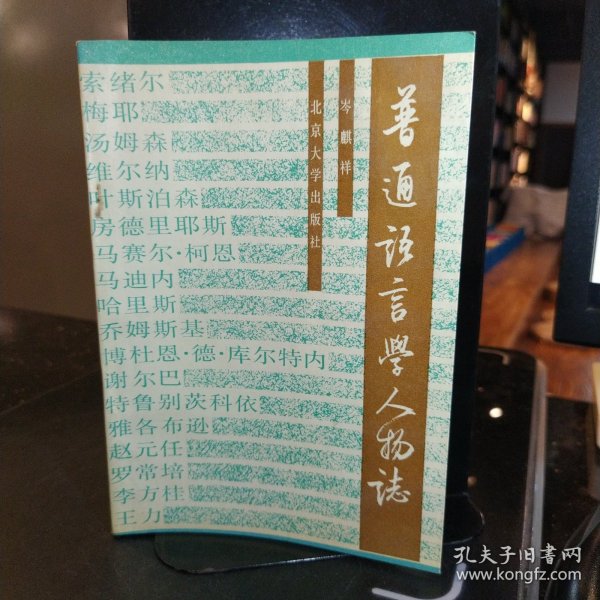 普通语言學人物誌
岑麒祥
北京大学出版社
索绪尔
梅耶
汤姆森
维尔纳
叶斯泊森
房德里耶斯
马赛尔·柯恩
马迪内
哈里斯
乔姆斯基
博杜恩·德·库尔特内
谢尔巴
特鲁别茨科依
雅各布逊
赵元任
罗常培
李方桂
王力
孔夫子旧书网
www.kongfz.com